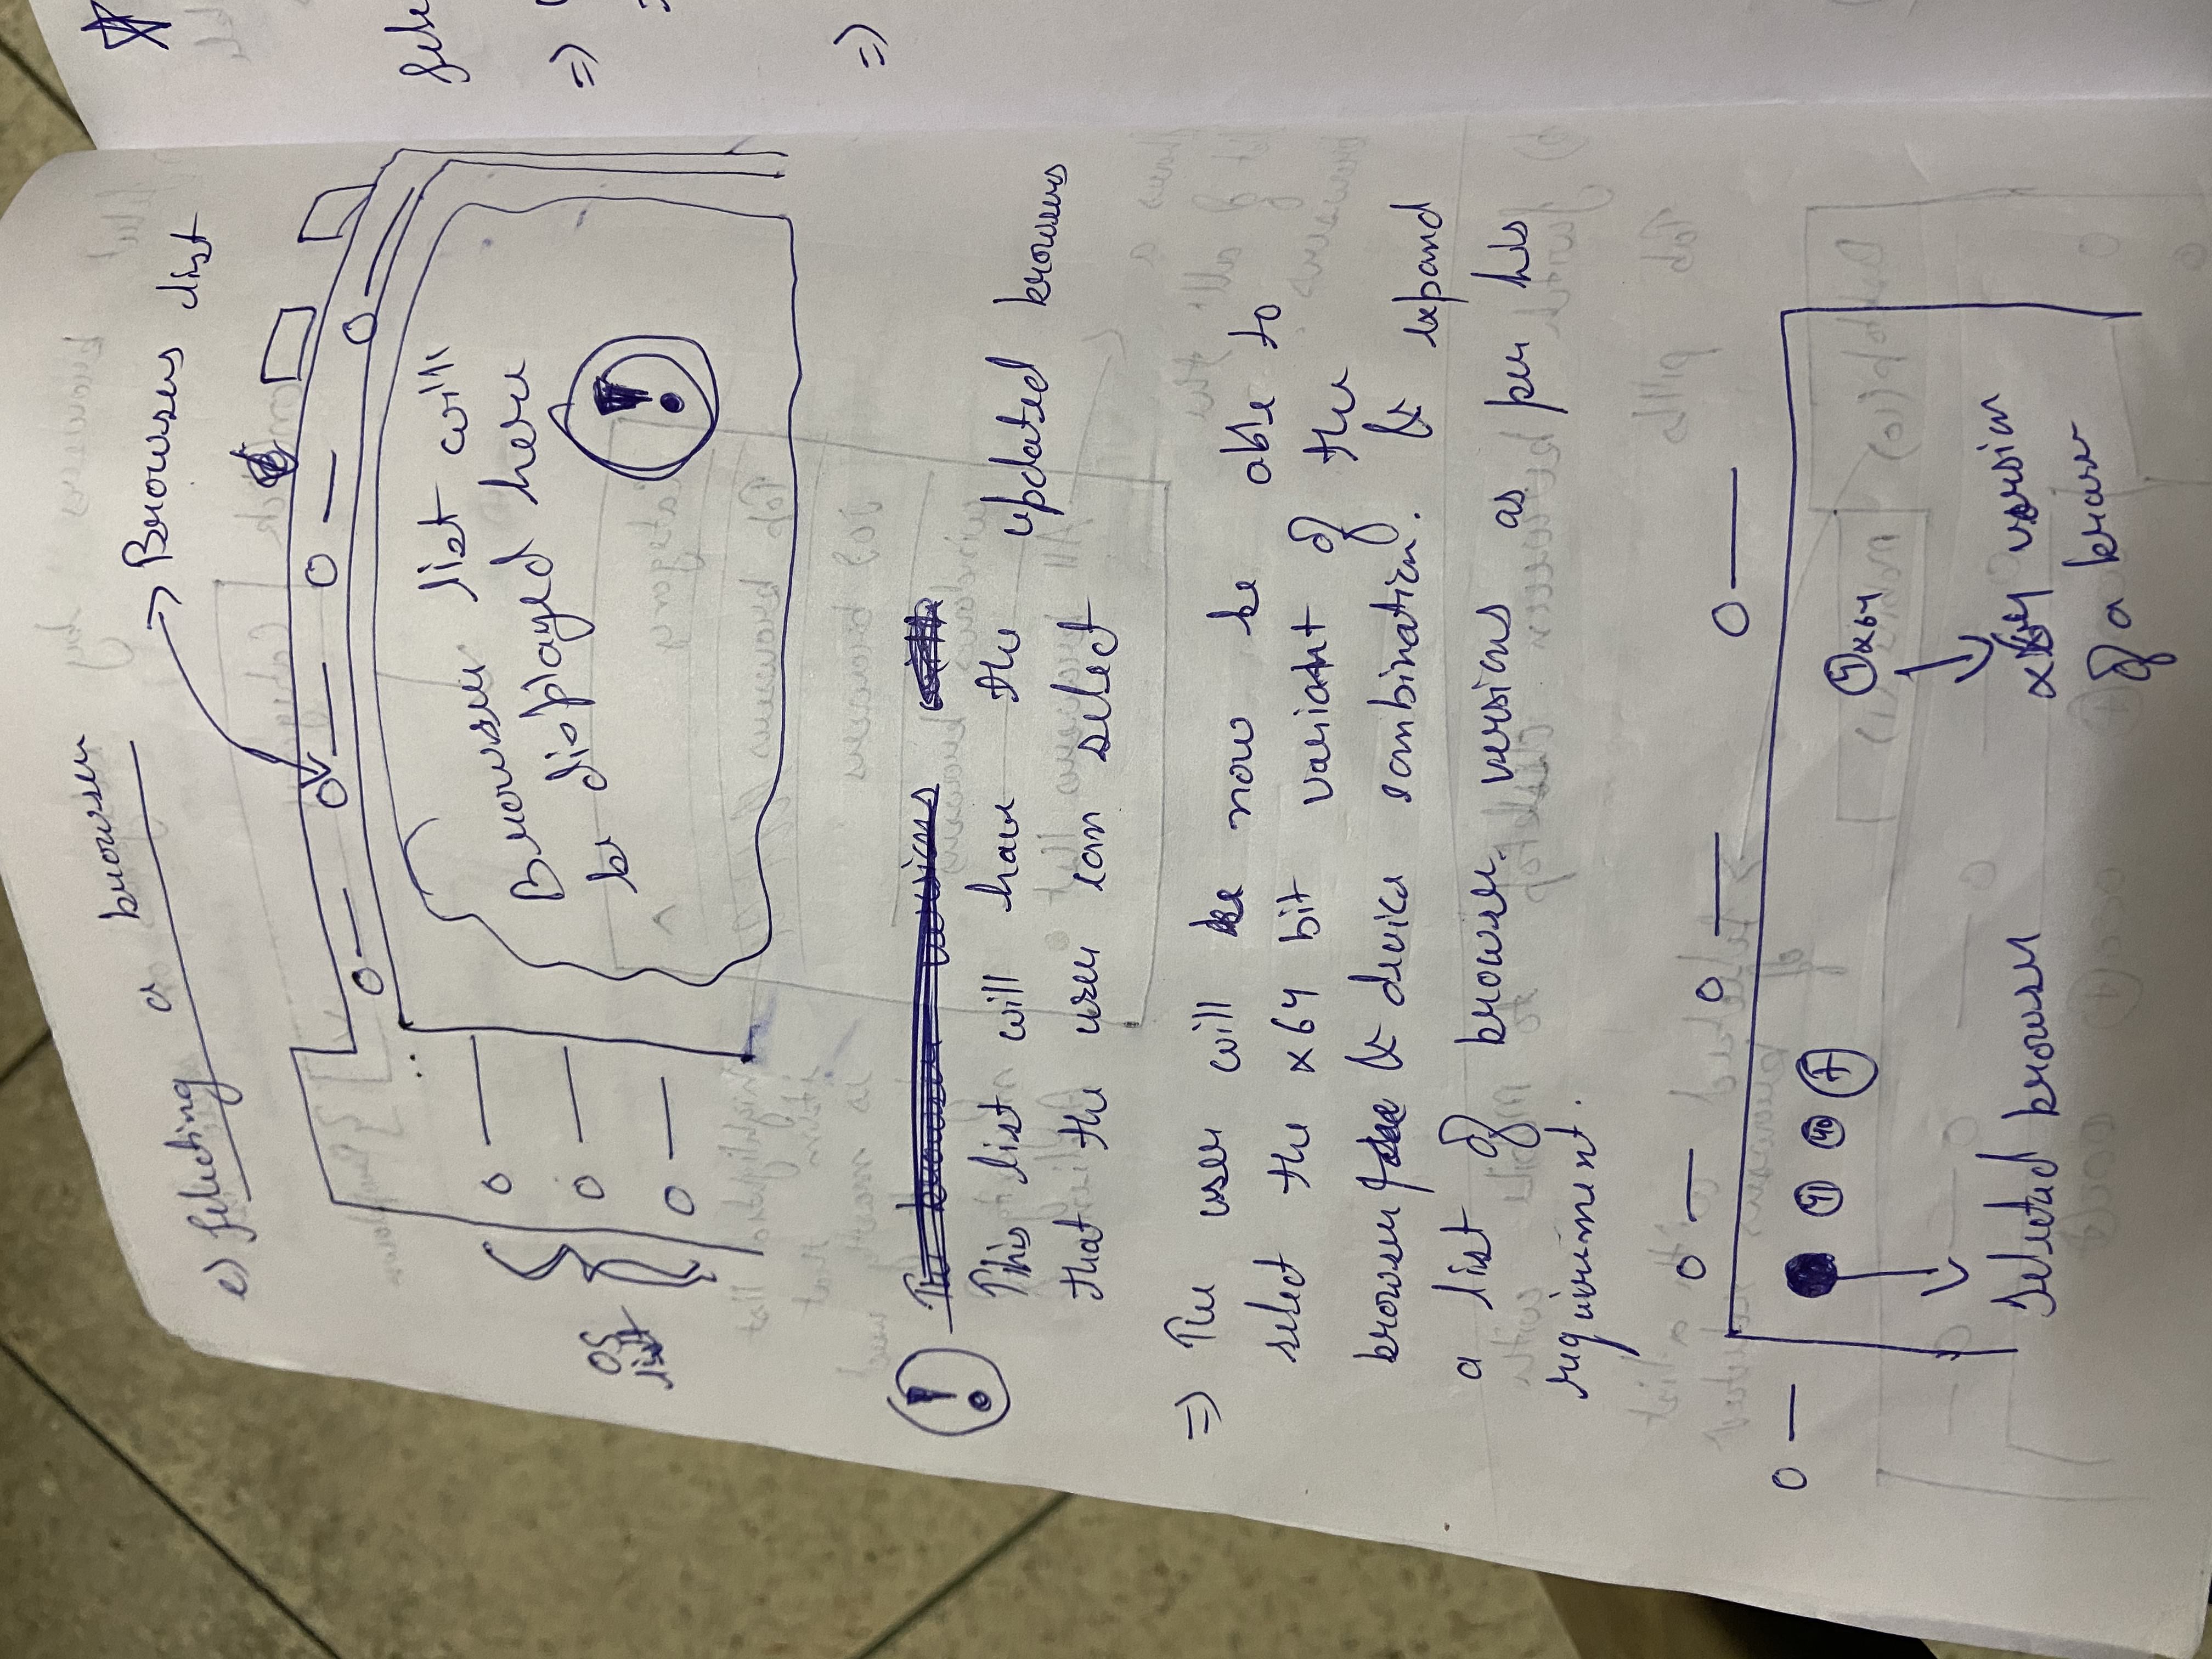 e) Selecting a browser
Browsers list
Browser list will
be displayed here
!
OS
list
!
The browser versions with
This list will have the updated browsers
that the user can select
=> The user will be now be able to
select the x64 bit variant of the
browser & device combination. & expand
a list of browser versions as per his
requirement.
41 40 +
4 x64
Selected browser
x64 version
of a browser
=>
=>